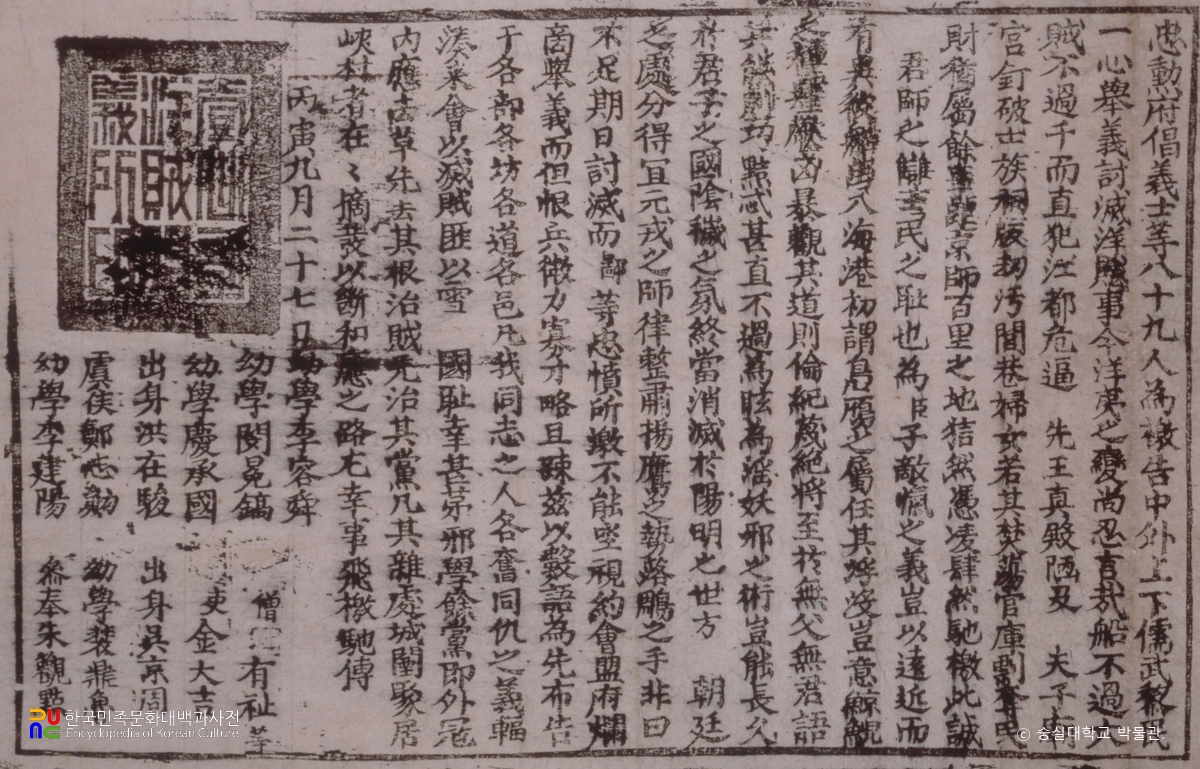 忠勳府倡義士等八十九人為檄告中外上下儒武黎民
一心舉義討滅洋醜事今洋夷之變尚忍言哉船不過六
賊不過千而直犯江都危逼 先王真殿陋及 夫子
宮釘破士族祠版劫污閭巷婦女若其焚蕩官庫劃奪民
財猶屬餘 京師百里之地猖然憑凌肆然馳檄此誠
君師之讎 民之耻也為臣子敵愾之義豈以遠近而
有異彼 海港初謂 鴈之屬任其浮沒豈意鯨觀
之 凶暴觀其道則倫紀蔑絕將至於無父無君語
其 技 點忒甚直不過為眩為淫妖邪之術豈能長久
於君子之國陰穢之氛終當消滅於陽明之世方 朝廷
之處分得宜元戎之師律整肅揚鷹之勢路鵰之手非曰
不足期日討滅而鄙等忠憤所激不能坐視約會盟府爛
啇舉義而但恨兵微力寡才略且踈玆以數語為先布告
于各部各坊各道各邑凡我同志之人各奮同仇之義輻
湊來會以滅賊匪以雪 國耻幸甚苐邪學餘黨即外寇
內應去草先去其根治賊先治其黨凡其雜處城闉 居
峽村者在々摘發以斷和應之路尢幸事飛檄馳傳
丙寅九月二十七日幼學李容舜
幼學閔冕鎬 僧 有祉等
幼學慶承國 吏金大
出身洪在駿 出身吳
虞侯鄭志勳 幼學裴
幼學李建陽 叅奉朱觀
한국민족문화대백과사전
Encyclopedia of Korean Culture
© 숭실대학교 박물관.